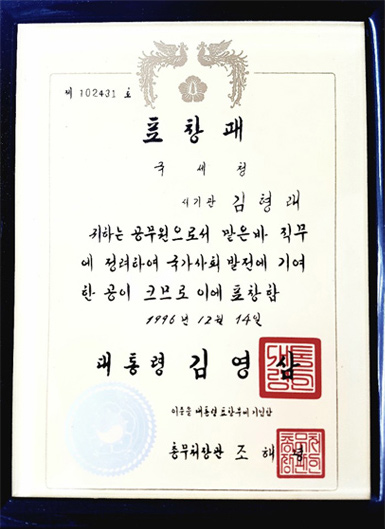 제 102431 호
표창패
국세청
서기관 김형래
귀하는 공무원으로서 맡은바 직무
에 정려하여 국가사회 발전에 기여
한 공이 크므로 이에 표창함
1996년 12월 14일
대통령 김영삼
이증을 대통령표창부에 기입함
총무처장관 조해녕